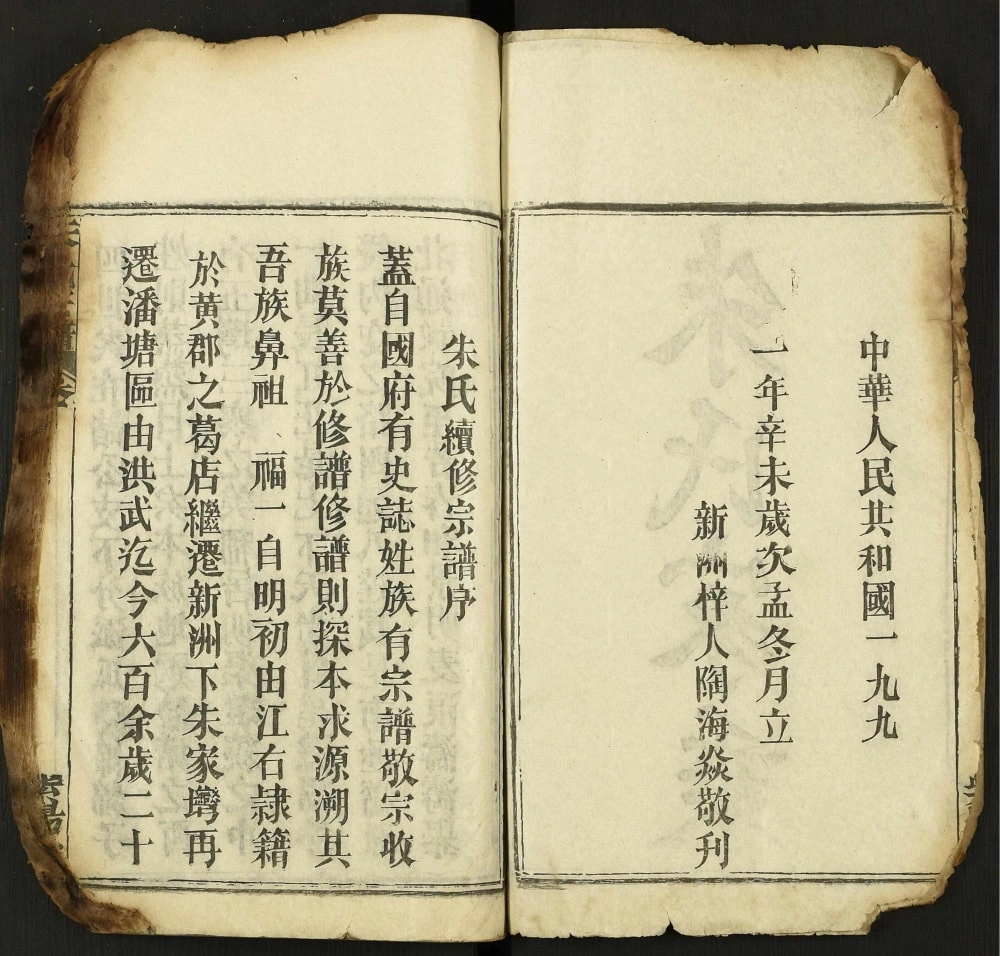 中華人民共和國一九九
一年辛未歲次孟冬月立
新洲梓人陶海焱敬刊
朱氏續修宗譜序
蓋自國府有史誌姓族有宗譜敬宗收
族莫善於修譜修譜則探本求源溯其
吾族鼻祖 福一自明初由江右隷籍
於黃郡之葛店繼遷新洲下朱家塆再
遷潘塘區由洪武迄今六百余歲二十